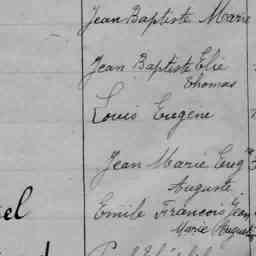 Jean Baptiste Marie
Jean Baptiste Elie
Thomas
Louis Eugene
Jean Marie Eug
Auguste
Emile Francois Jean
Marie August